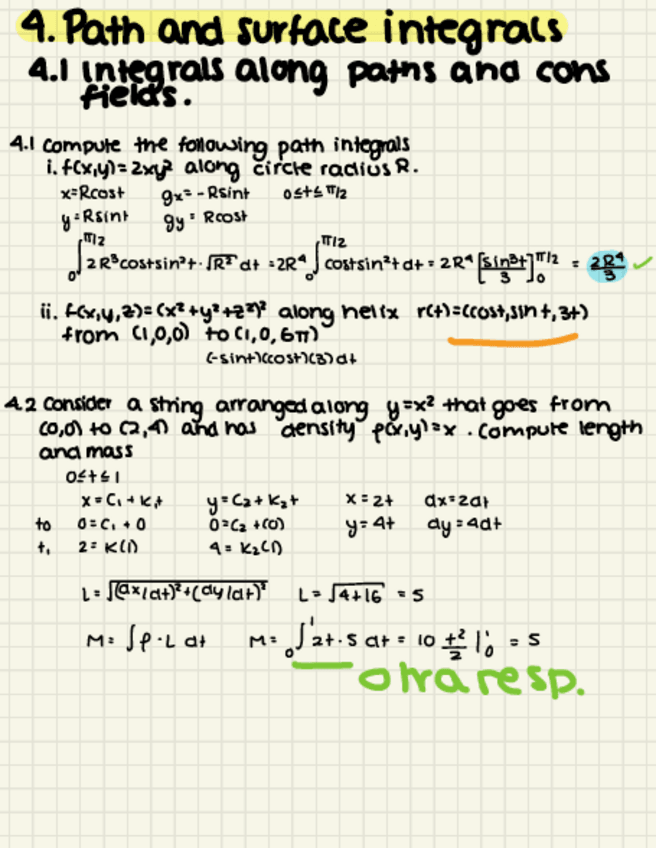 4. Path and surface integrals
4.1 integrals along paths and cons
fields.
4.1 Compute the following path integrals
i. f(x,y)=2xy² along circle radius R.
x=Rcost gx=-Rsint 0≤t≤π/2
y=Rsint gy=Rcost
₀∫^π/2 2R³costsin²t·√R² dt =2R⁴ ₀∫^π/2 costsin²t dt = 2R⁴ [sin³t/3]₀^π/2 = 2R⁴/3 ✓
ii. f(x,y,z)=(x²+y²+z²)² along helix r(t)=(cost,sint,3t)
from (1,0,0) to (1,0,6π)
(-sint)(cost)(3)dt
4.2 Consider a string arranged along y=x² that goes from
(0,0) to (2,4) and has density ρ(x,y)=x. Compute length
and mass
0≤t≤1
x=C₁+K₁t y=C₂+K₂t x=2t dx=2dt
t₀ 0=C₁+0 0=C₂+(0) y=4t dy=4dt
t₁ 2=K(1) 4=K₂(1)
L=√(dx/dt)²+(dy/dt)² L=√4+16 = 5
M=∫ρ·L dt M=₀∫¹2t·5 dt = 10 t²/2 |₀¹ = 5
otra resp.